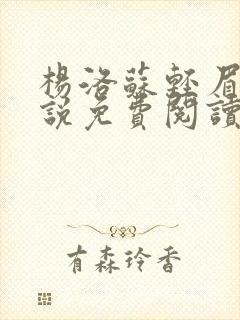 楊洛蘇輕眉
說免費閱讀
有森玲香